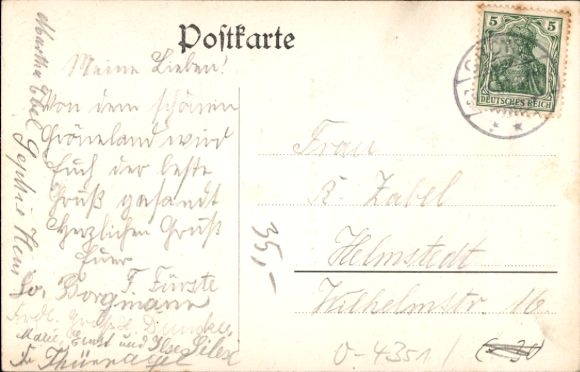 Postkarte
5 5
DEUTSCHES REICH
Meine Lieben!
Von dem schönen
Gröneland wird
Euch der beste
Gruß gesandt
Herzlichen Gruß
Euer
F. Fürste
Borgmann
Marie, Ernst und Ilse
Martha
Frau
B. Zabel
Helmstedt
Wilhelmstr. 16
35,-
0-4351/